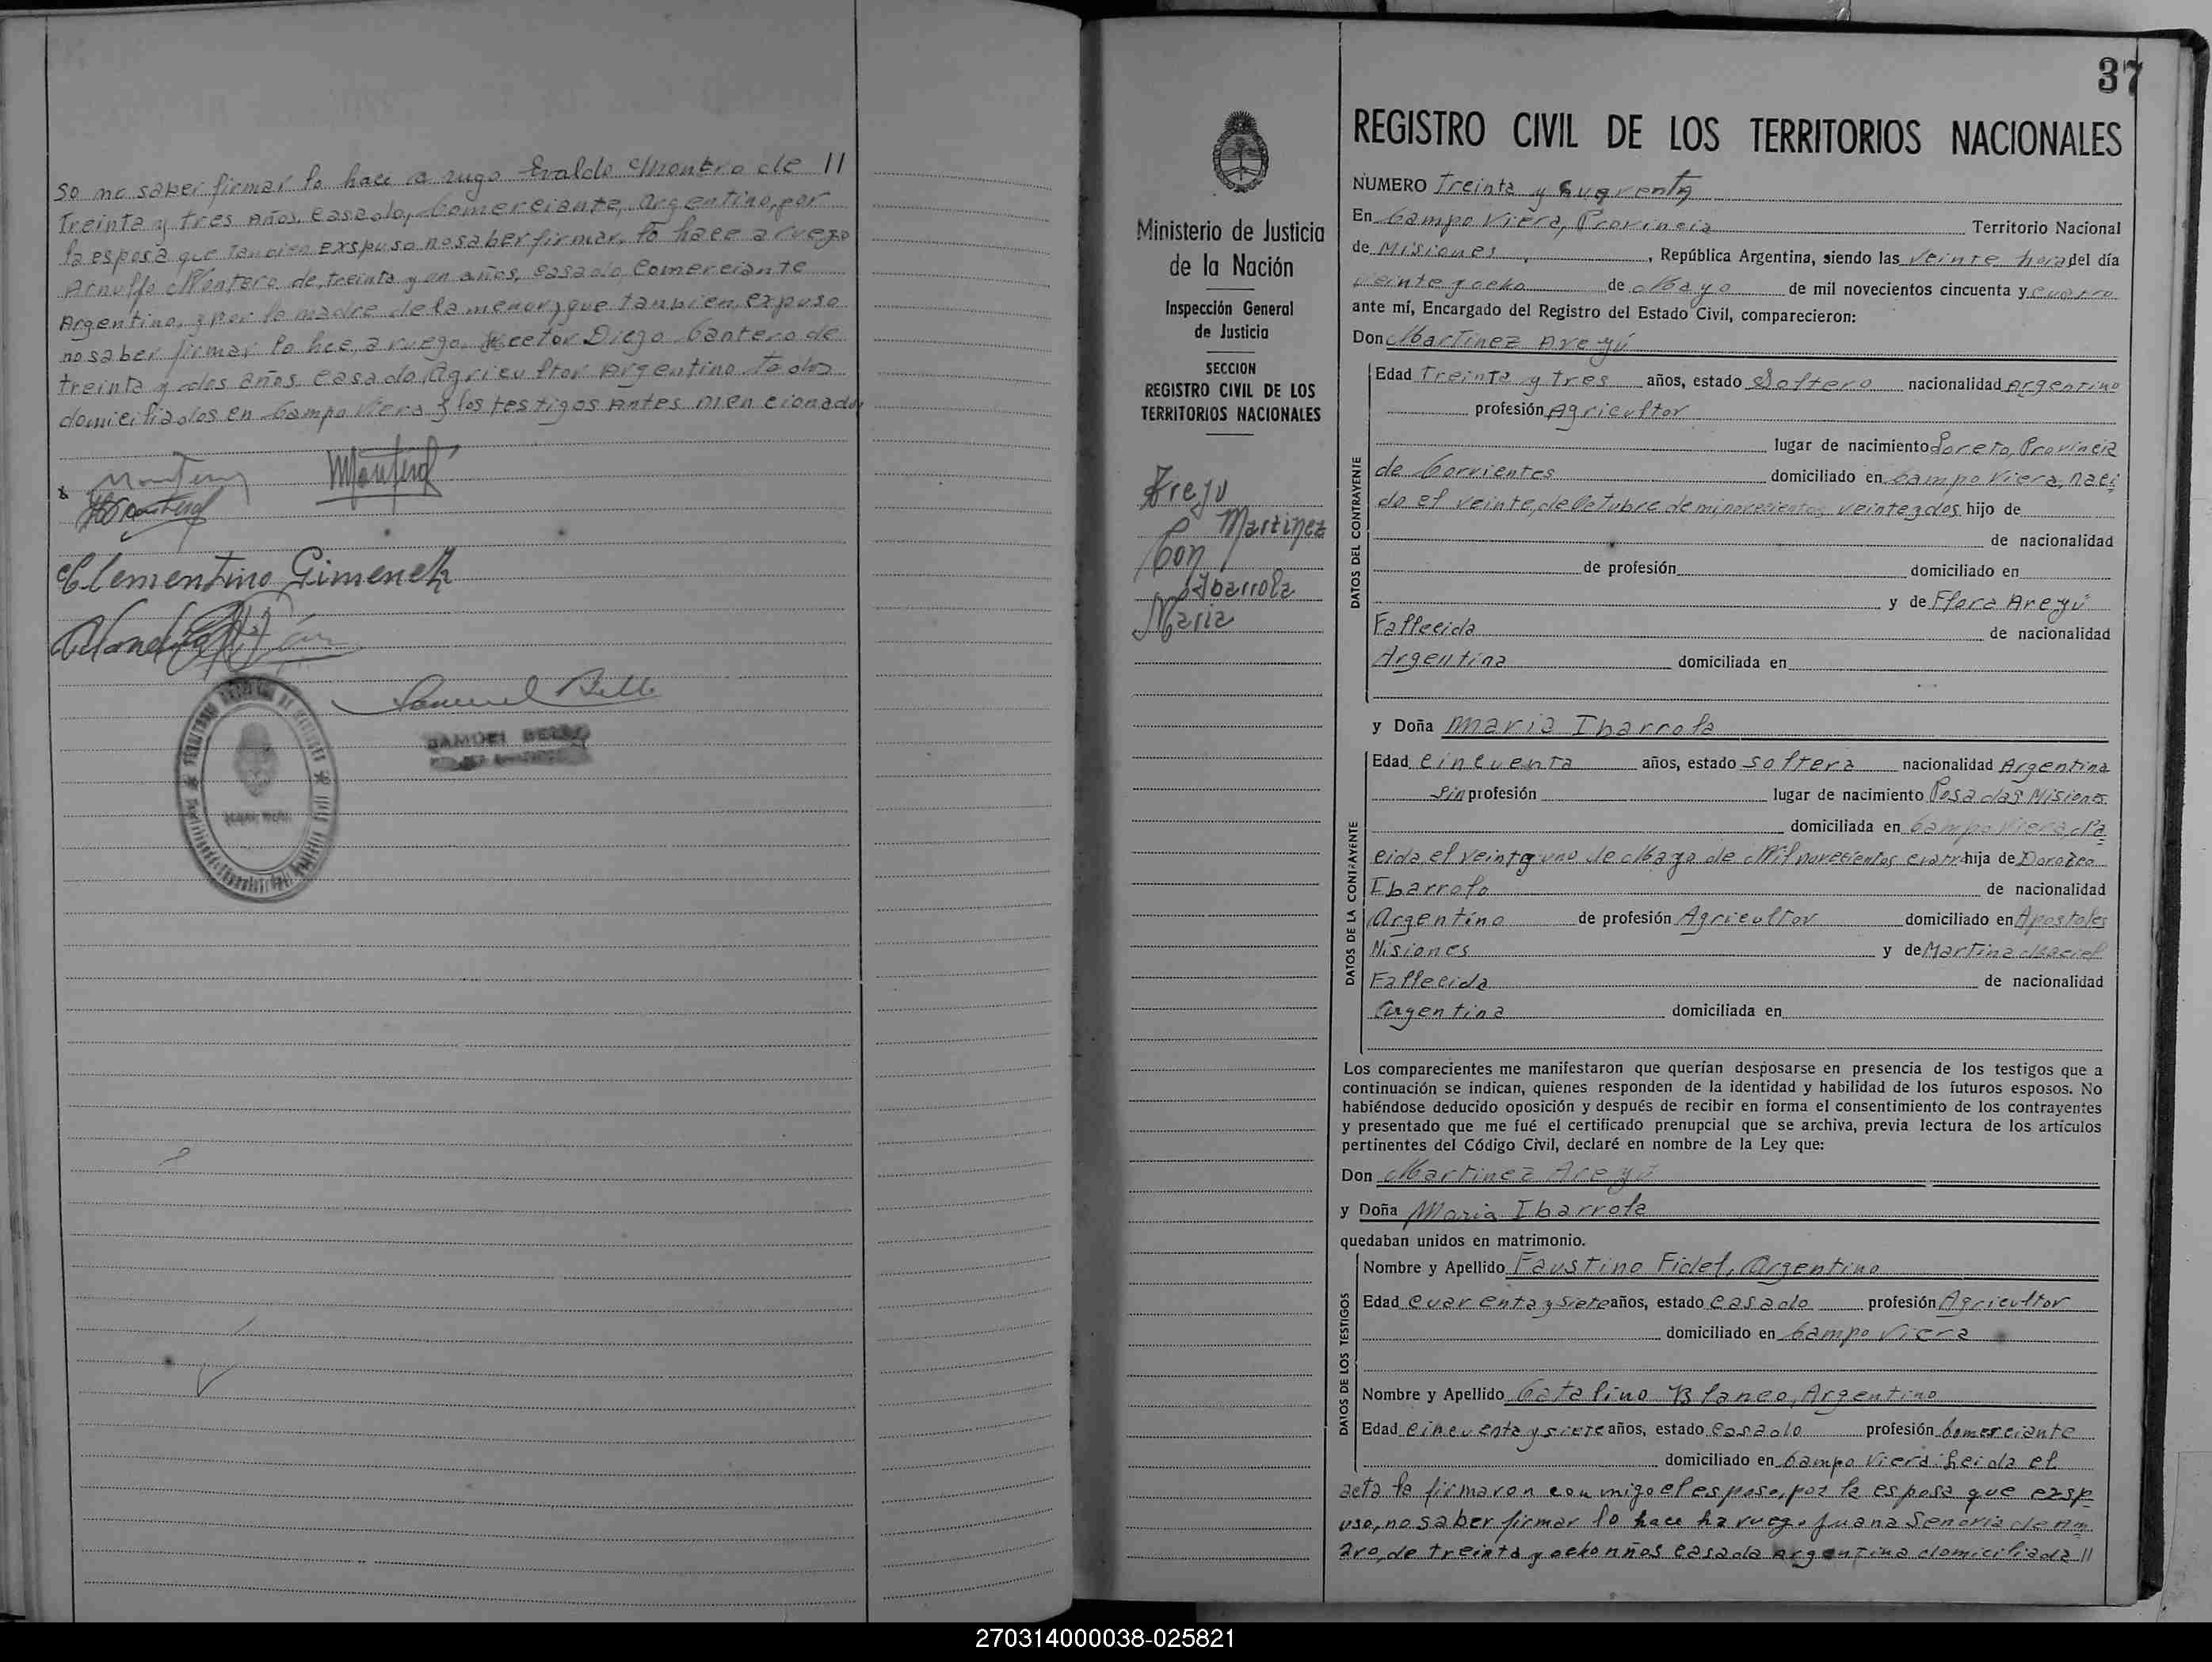 so no saber firmar lo hace a rugo Evaldo Montero de //
Treinta y tres Años, Casado, Comerciante, argentino, por
la esposa que tanvien exspuso no saber firmar, lo hace a ruego
Arnulfo Montero de, treinta y un años, casado, Comerciante
Argentino, y por la madre de la menor, y que tanvien, expuso
no saber firmar lo hce, a ruego, Hector Diego Cantero de
treinta y dos años casado, Agricultor Argentino todos
domiciliados en Campo Viera y los testigos Antes mencionados
Clementino Gimenez
Samuel Bello
SAMUEL BELLO
37
REGISTRO CIVIL DE LOS TERRITORIOS NACIONALES
Ministerio de Justicia
de la Nación
Inspección General
de Justicia
SECCION
REGISTRO CIVIL DE LOS
TERRITORIOS NACIONALES
Martinez
Con
Ibarrola
Maria
NUMERO Treinta y
En Campo Viera, Provincia Territorio Nacional
de Misiones, , República Argentina, siendo las Veinte hora del día
veinte y ocho de Mayo de mil novecientos cincuenta y cuatro
ante mí, Encargado del Registro del Estado Civil, comparecieron:
Don Martinez Areyú
DATOS DEL CONTRAYENTE
Edad Treinta y tres años, estado Soltero nacionalidad Argentino
profesión Agricultor
lugar de nacimiento Loreto, Provincia
de Corrientes domiciliado en Campo Viera, naci
do el veinte, de Octubre de mi novecientos, veinte y dos hijo de
de nacionalidad
de profesión domiciliado en
y de Flora Areyú
Fallecida de nacionalidad
Argentina domiciliada en
y Doña Maria Ibarrola
DATOS DE LA CONTRAYENTE
Edad Cincuenta años, estado soltera nacionalidad Argentina
Sin profesión lugar de nacimiento Posadas Misiones
domiciliada en Campo Viera, Na
cida el veintg uno de Mayo de Mil novecientos, cuatr hija de Doroteo
Ibarrola de nacionalidad
Argentino de profesión Agricultor domiciliado en Apostoles
Misiones y de Martina Maciel
Fallecida de nacionalidad
Argentina domiciliada en
Los comparecientes me manifestaron que querían desposarse en presencia de los testigos que a
continuación se indican, quienes responden de la identidad y habilidad de los futuros esposos. No
habiéndose deducido oposición y después de recibir en forma el consentimiento de los contrayentes
y presentado que me fué el certificado prenupcial que se archiva, previa lectura de los artículos
pertinentes del Código Civil, declaré en nombre de la Ley que:
Don Martinez Areyú
y Doña Maria Ibarrola
quedaban unidos en matrimonio.
DATOS DE LOS TESTIGOS
Nombre y Apellido Faustino Fidel, Argentino
Edad cuarenta y Siete años, estado casado profesión Agricultor
domiciliado en Campo Viera
Nombre y Apellido Catalino Blanco, Argentino
Edad cincuenta y siete años, estado casado profesión Comerciante
domiciliado en Campo Viera. Leida el
acta la firmaron conmigo el esposo, por la esposa que exsp
uso, no saber firmar lo hace ha ruego Juana Senoria de Am
aro, de treinta y ocho nños casada argentina domiciliada //
270314000038-025821